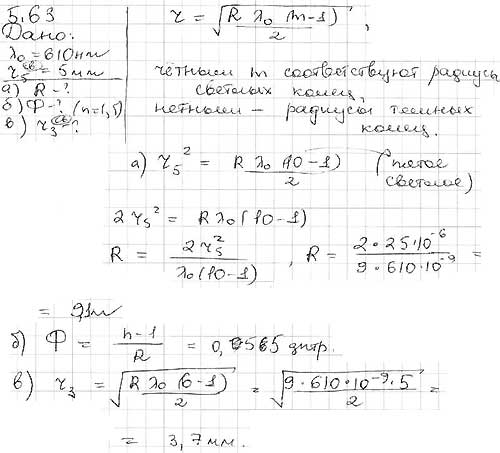 5.63
Дано:
λ₀ = 610 нм
r₅ св = 5 мм
а) R - ?
б) Ф - ? (n = 1,5)
в) r₃ св - ?
r = √(R λ₀ (m-1) / 2),
чётным m соответствуют радиусы
светлых колец,
нетным – радиусы темных
колец.
а) r₅² = R λ₀ (10 - 1) / 2 (пятое
светлое)
2r₅² = R λ₀ (10 - 1)
R = 2r₅² / λ₀(10-1) , R = 2 • 25 • 10⁻⁶ / 9 • 610 • 10⁻⁹ =
= 9,1 м
б) Ф = n-1 / R = 0,0565 дптр.
в) r₃ = √(R λ₀ (6-1) / 2) = √(9 • 610 • 10⁻⁹ • 5 / 2) =
= 3,7 мм.